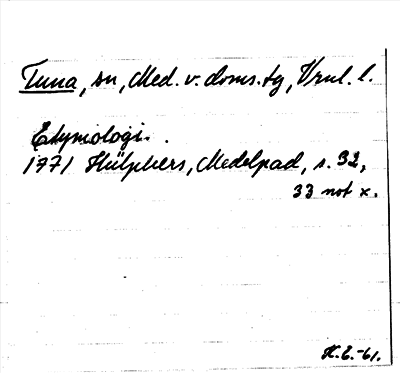 Tuna, sn, Med. v. doms. tg, Vrnl. l.
Etymologi.
1771 Hülphers, Medelpad, s. 32,
33 not x.
H.E.-61.